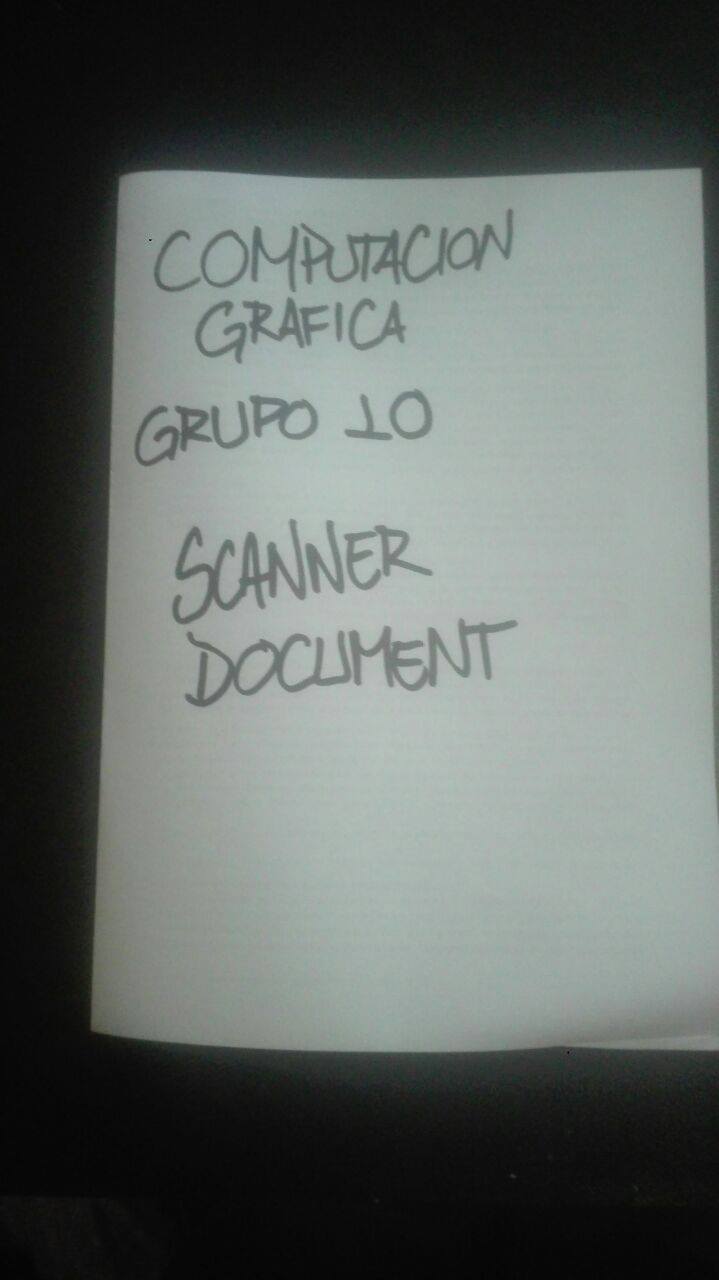 COMPUTACION
GRAFICA
GRUPO 10
SCANNER
DOCUMENT